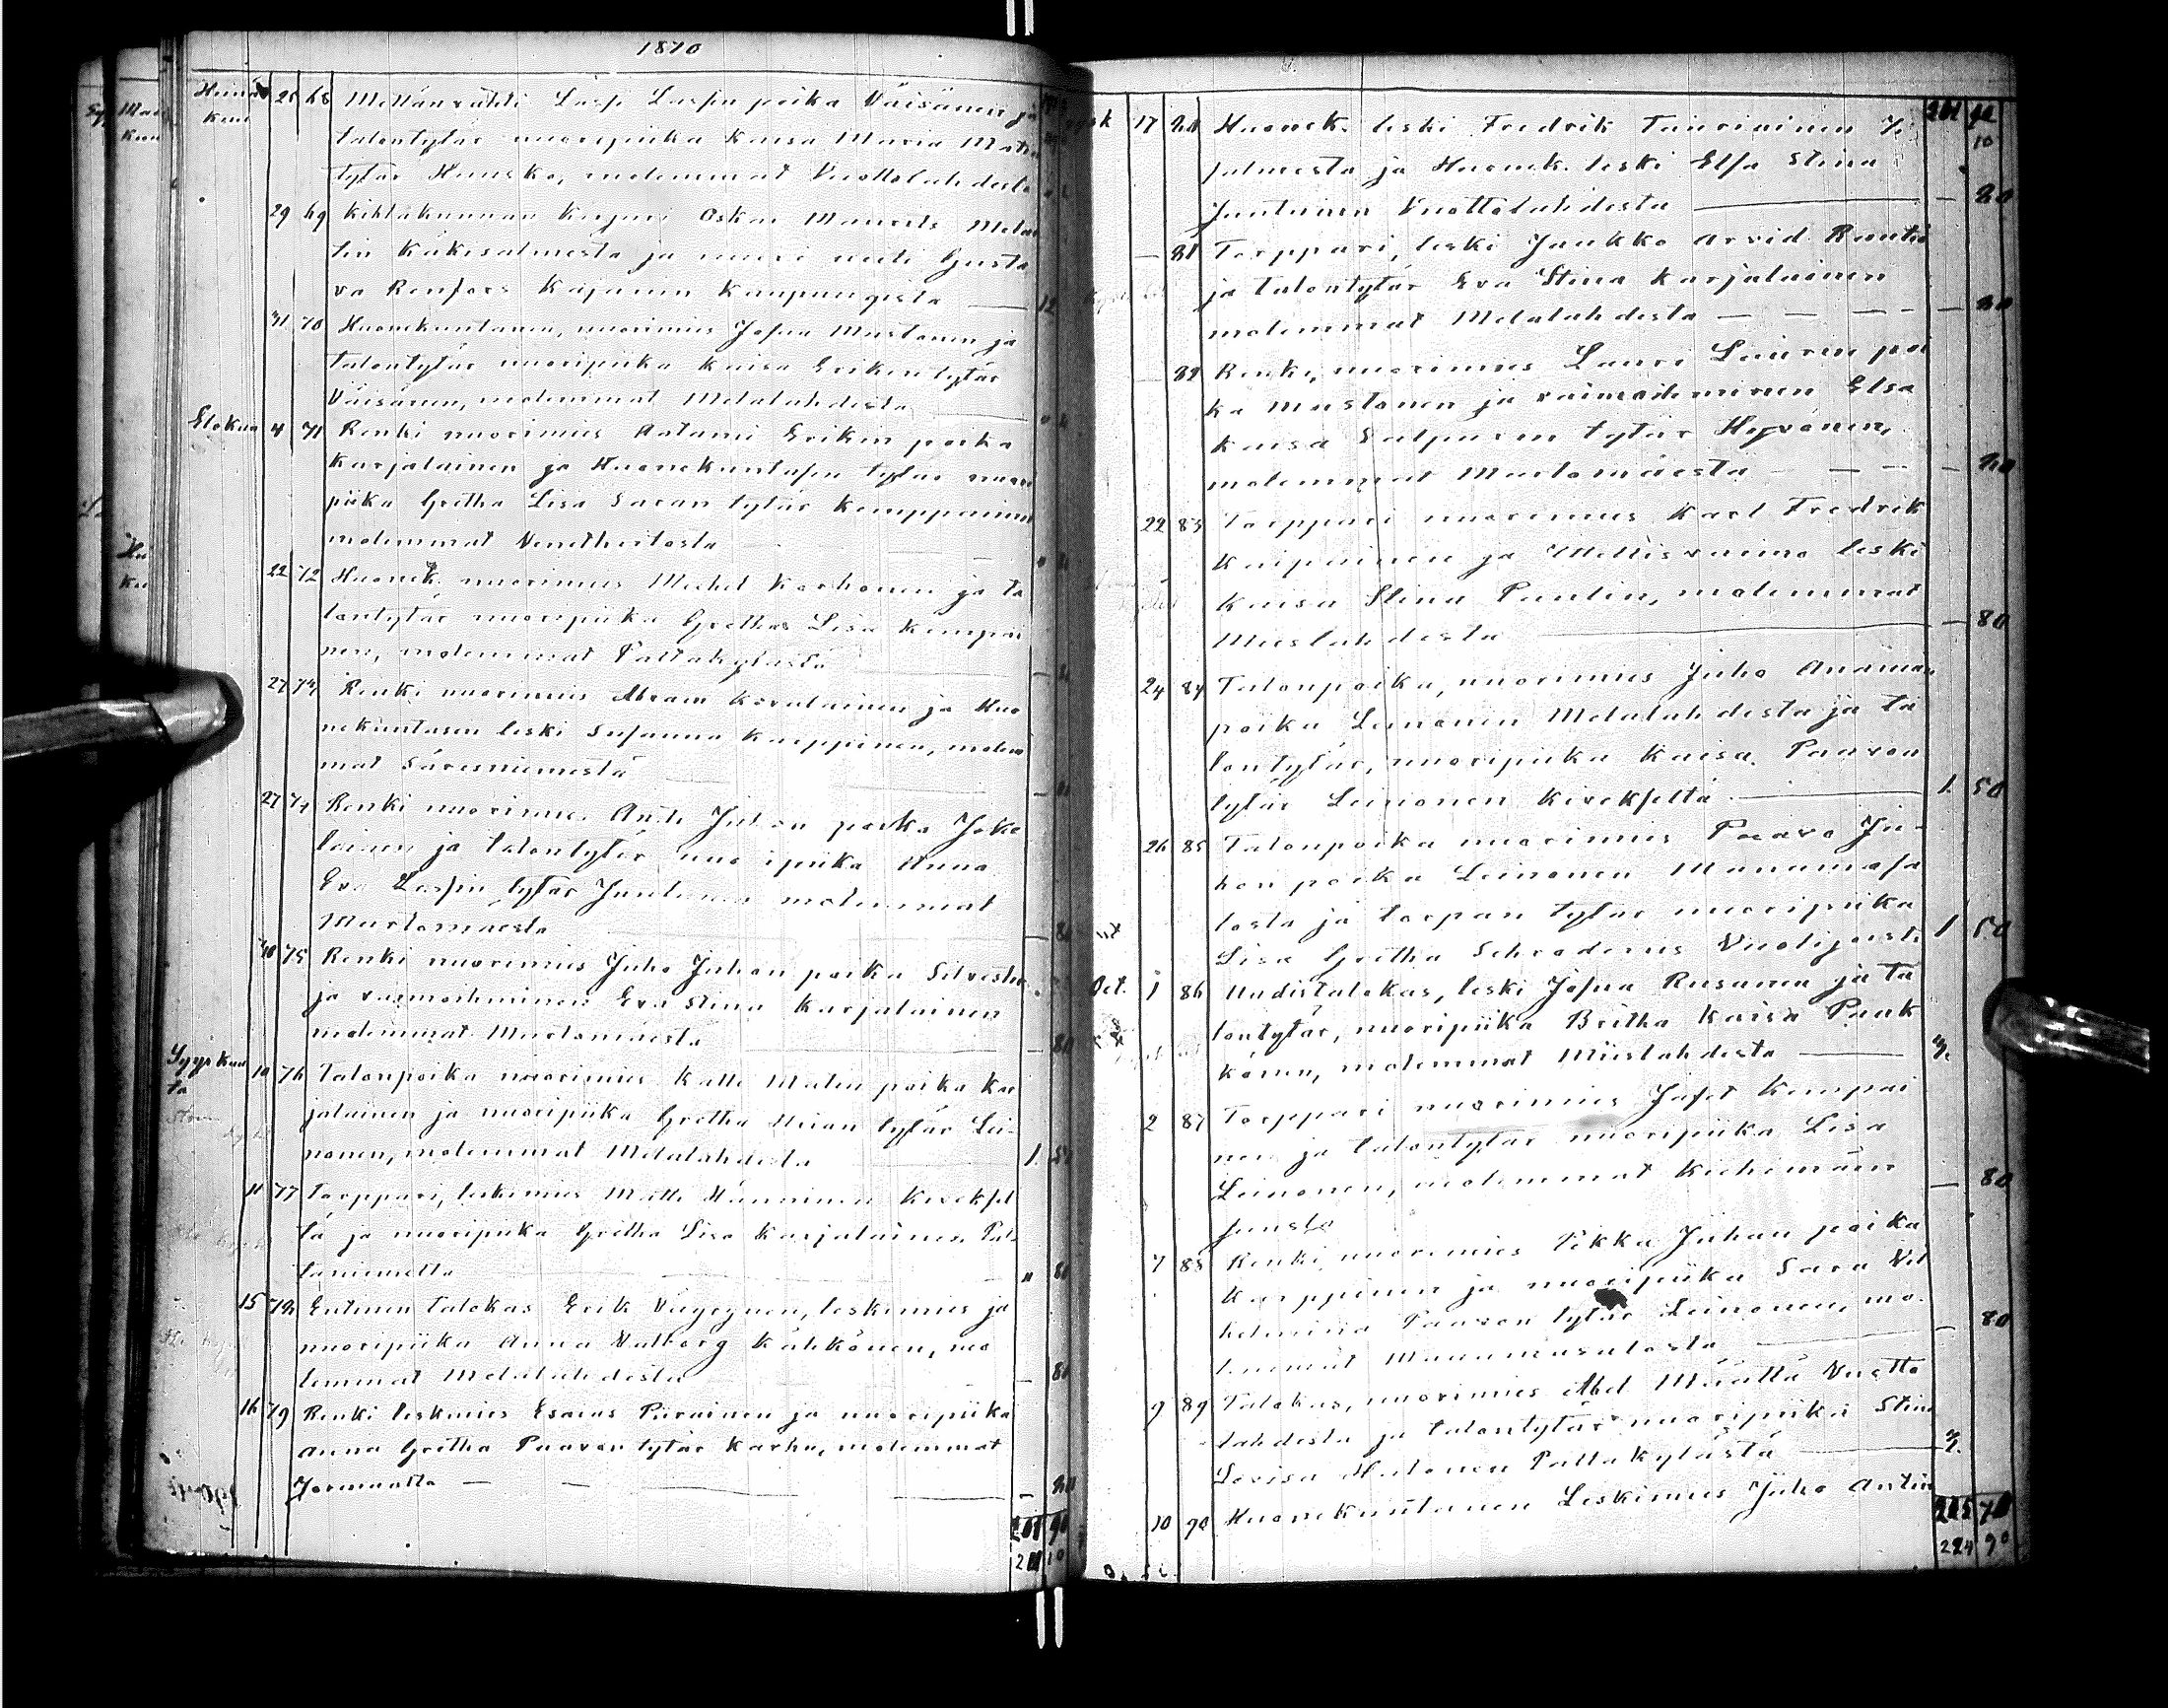 1870
Heinä 28 68 Mettänvahti Lasse Lassen poika Väisänen ja
kuu talontytär nuoripiika Kaisa Maria Matin
tytär Huusko, molemmat Vuottolahdesta
29 69 Kihlakunnan Kirjuri Oskar Maurits Melan
tin Käkisalmesta ja neiti Gusta
va Renfors Kajanin Kaupungista — 12
31 70 Huonekuntanen, nuorimies Josua Mustonen ja
talontytär nuoripiika Kaisa Erikin tytär
Väisänen, molemmat Melalahdesta
Elokuu 4 71 Renki nuorimies Aatami Erikin poika
Karjalainen ja Huonekuntasen tytär nuori
piika Gretha Lisa Saran tytär Kemppainen
molemmat
22 72 Huonek. nuorimies Michel Karhonen ja ta
lontytär nuoripiika Gretha Lisa Kempai
nen, molemmat Paltakylästä
27 73 Renki nuorimies Abram Kovalainen ja Huo
nekuntasen leski Susanna Karppinen, molem
mat Säresniemestä
27 74 Renki nuorimies Antti Juhon poika Joke
lainen ja talontytär nuoripiika Anna
Eva Lassen tytär Juntunen molemmat
Murtomäestä — 80
30 75 Renki nuorimies Juho Juhon poika Silvesti
ja vaimoihminen Eva Stina Karjalainen
molemmat Murtomäestä — 80
Syyskuu 10 76 Talonpoika nuorimies Kalle Matin poika Kar
ta jalainen ja nuoripiika Gretha Heian tytär Lei-
nonen, molemmat Melalahdesta 1. 50
11 77 Torppari, leskimies Matti Hänninen Kivekses
tä ja nuoripiika Gretha Lisa Karjalainen Pal-
taniemeltä " 80
15 78 Entinen talokas Erik Väyrynen, leskimies ja
nuoripiika Anna Valborg Kähkönen, mo
lemmat Melalahdesta — 80
16 79 Renki leskimies Esaias Piirainen ja nuoripiika
Anna Gretha Paavon tytär Karhu, molemmat
Jormuasta — — — — 80
201 90
211 10
17 80 Huonek. leski Fredrik Tauriainen
jalmesta ja Huonek. leski Elsa Stina
Juntunen Vuottolahdesta — — 80
— 81 Torppari, leski Jaakko Arvid Rautio
ja talontytär Eva Stina Karjalainen
molemmat Melalahdesta — — — — 80
82 Renki, nuorimies Lauri Laurin poi
ka Mustonen ja vaimoihminen Elsa
Kaisa Salpuren tytär Hyvönen,
molemmat Murtomäestä — — — — 80
22 83 Torppari nuorimies Karl Fredrik
Kaipainen ja Mettisvaimo leski
Kaisa Stina Pantin, molemmat
Mieslahdesta — — 80
24 84 Talonpoika, nuorimies Juho Anaman
poika Leinonen Melalahdesta ja ta
lontytär, nuoripiika Kaisa Paavon
tytär Leinonen Kivekseltä — 1. 50
26 85 Talonpoika nuorimies Paavo Ju-
hon poika Leinonen Manamasa
losta ja torpan tytär nuoripiika
Lisa Gretha Schroderus Vuolijoesta 1 50
Oct. 1 86 Uudistalokas, leski Josua Rusanen ja ta
lontytär, nuoripiika Britha Kaisa Pääk
könen, molemmat Mieslahdesta —
2 87 Torppari nuorimies Jafet Kempai
nen ja talontytär nuoripiika Lisa
Leinonen, molemmat Kiehimän
suusta — 80
7 88 Renki, nuorimies Pekka Juhan poika
Karppinen ja nuoripiika Sara Vil
helmina Paavon tytär Leinonen, mo-
lemmat Manamasalosta — — 80
9 89 Talokas, nuorimies Abel Määttä Vuotto
lahdesta ja talontytär nuoripiika Stina
Lovisa Hulonen Paltakylästä —
10 90 Huonekuntanen Leskimies Juho Antin
215 70
224 90